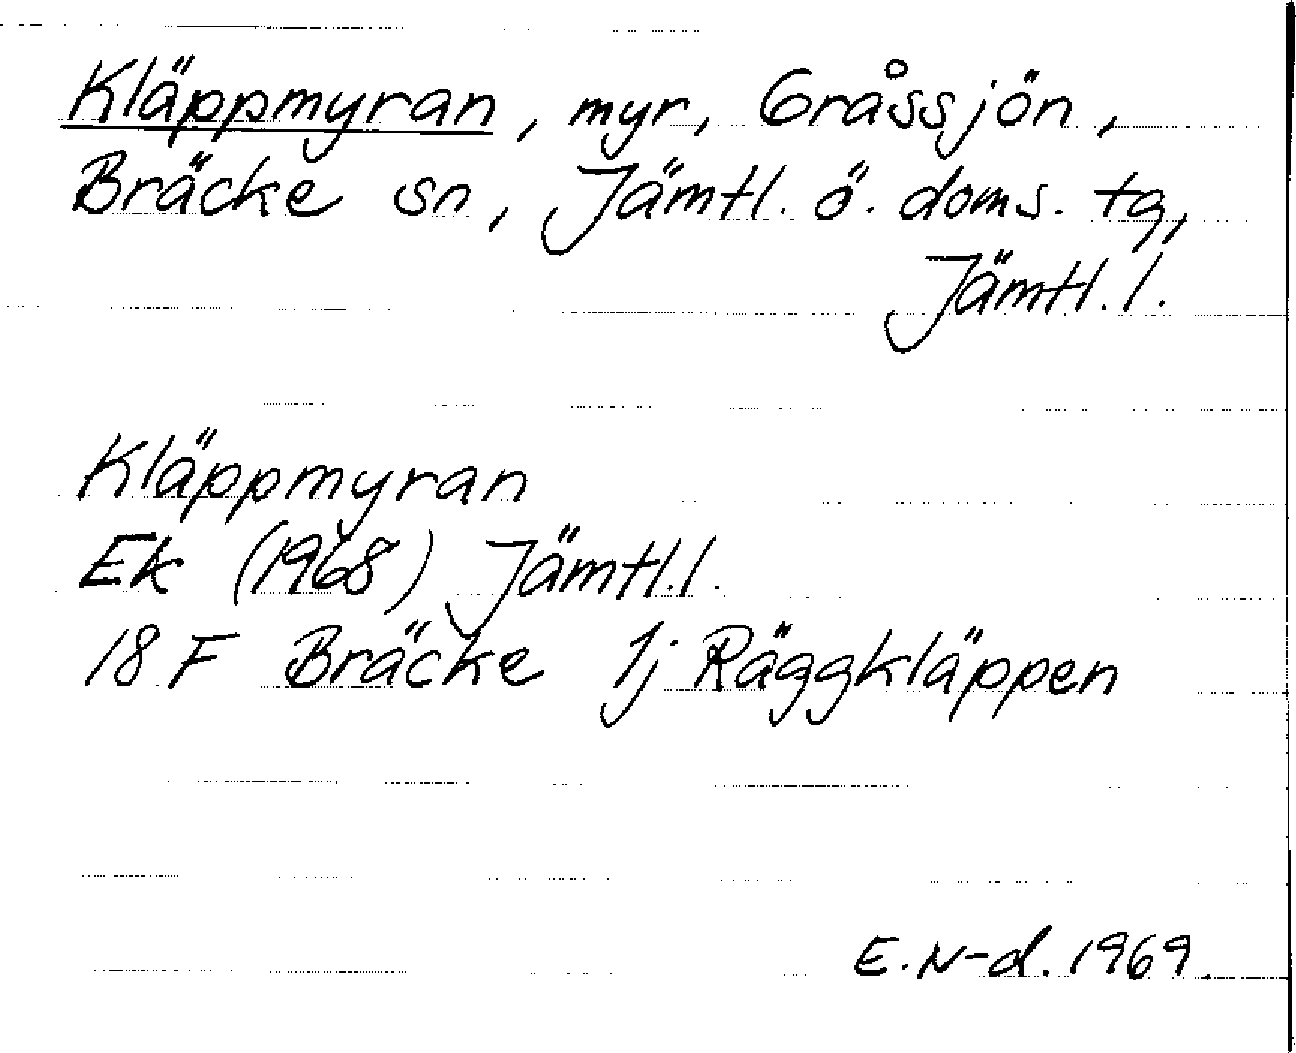 Kläppmyran, myr, Gråssjön,
Bräcke sn, Jämtl. ö. doms. tg,
Jämtl. l.
Kläppmyran
Ek (1968) Jämtl. l.
18 F Bräcke 1j Räggkläppen
E. N-d. 1969.